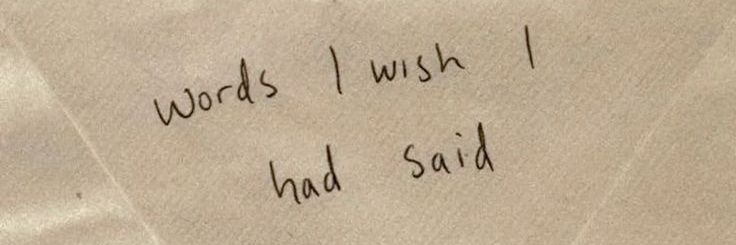 words I wish I
had said